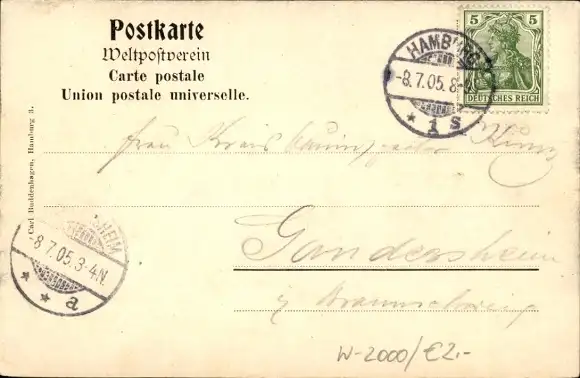 Postkarte
Weltpostverein
Carte postale
Union postale universelle.
5 5
DEUTSCHES REICH
HAMBURG
-8.7.05. 8-
* 1 s
Frau Kreis
Gandersheim
Braunschweig
HEIM
-8 7.05. 3-4 N.
* * a
Carl Buddenhagen, Hamburg 3.
W-2000/€2.-